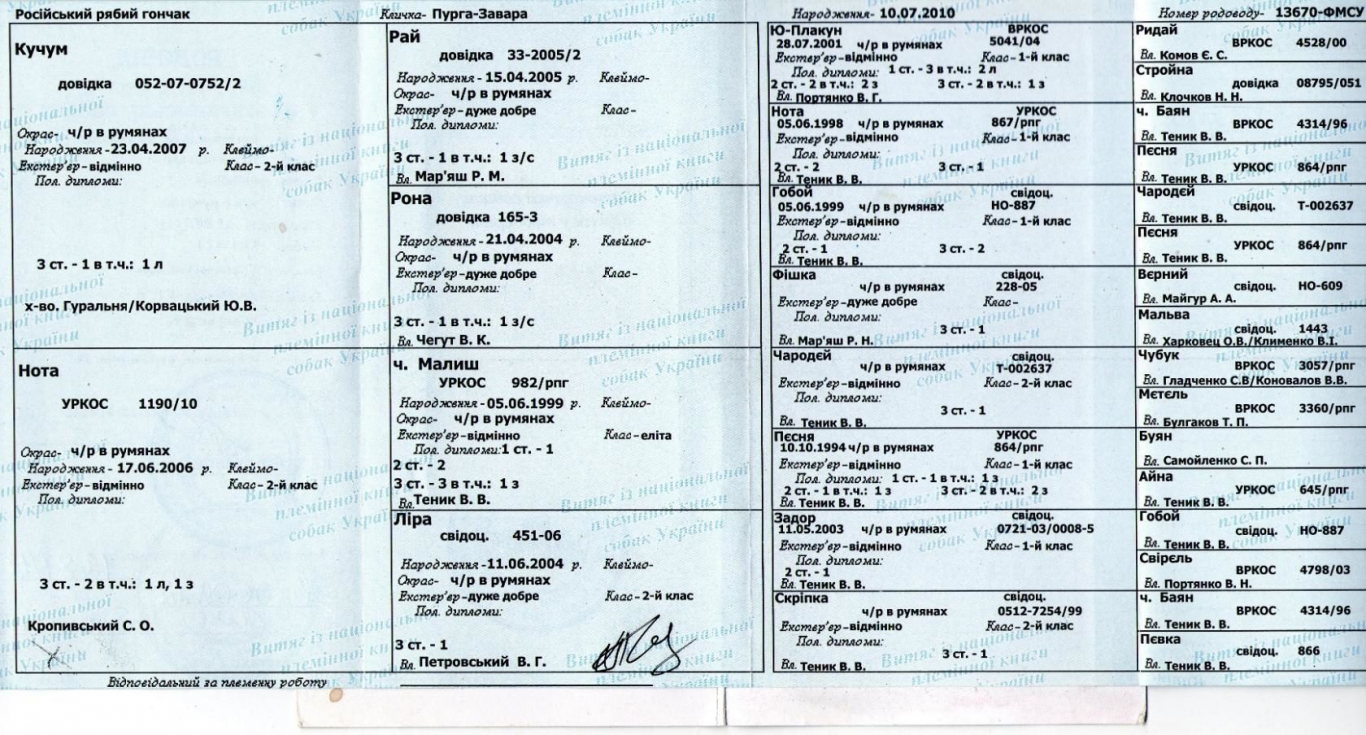 Російський рябий гончак Кличка- Пурга-Завара Народження- 10.07.2010 Номер родоводу- 13670-ФМСУ
Кучум
довідка 052-07-0752/2
Окрас- ч/р в румянах
Народження-23.04.2007 р. Клеймо-
Екстер'єр-відмінно Клас-2-й клас
Пол. дипломи:
3 ст. - 1 в т.ч.: 1 л
х-во. Гуральня/Корвацький Ю.В.
Нота
УРКОС 1190/10
Окрас- ч/р в румянах
Народження-17.06.2006 р. Клеймо-
Екстер'єр-відмінно Клас-2-й клас
Пол. дипломи:
3 ст. - 2 в т.ч.: 1 л, 1 з
Кропивський С. О.
Відповідальний за племенну роботу
Рай
довідка 33-2005/2
Народження-15.04.2005 р. Клеймо-
Окрас- ч/р в румянах
Екстер'єр-дуже добре Клас-
Пол. дипломи:
3 ст. - 1 в т.ч.: 1 з/с
Вл. Мар'яш Р. М.
Рона
довідка 165-3
Народження-21.04.2004 р. Клеймо-
Окрас- ч/р в румянах
Екстер'єр-дуже добре Клас-
Пол. дипломи:
3 ст. - 1 в т.ч.: 1 з/с
Вл. Чегут В. К.
ч. Малиш
УРКОС 982/рпг
Народження-05.06.1999 р. Клеймо-
Окрас- ч/р в румянах
Екстер'єр-відмінно Клас-еліта
Пол. дипломи:1 ст. - 1
2 ст. - 2
3 ст. - 3 в т.ч.: 1 з
Вл. Теник В. В.
Ліра
свідоц. 451-06
Народження-11.06.2004 р. Клеймо-
Окрас- ч/р в румянах
Екстер'єр-дуже добре Клас-2-й клас
Пол. дипломи:
3 ст. - 1
Вл. Петровський В. Г.
Ю-Плакун ВРКОС
28.07.2001 ч/р в румянах 5041/04
Екстер'єр-відмінно Клас-1-й клас
Пол. дипломи: 1 ст. - 3 в т.ч.: 2 л
2 ст. - 2 в т.ч.: 2 з 3 ст. - 2 в т.ч.: 1 з
Вл. Портянко В. Г.
Нота УРКОС
05.06.1998 ч/р в румянах 867/рпг
Екстер'єр-відмінно Клас-1-й клас
Пол. дипломи:
2 ст. - 2 3 ст. - 1
Вл. Теник В. В.
Гобой свідоц.
05.06.1999 ч/р в румянах НО-887
Екстер'єр-відмінно Клас-1-й клас
Пол. дипломи:
2 ст. - 1 3 ст. - 2
Вл. Теник В. В.
Фішка свідоц.
ч/р в румянах 228-05
Екстер'єр-дуже добре Клас-
Пол. дипломи:
3 ст. - 1
Вл. Мар'яш Р. Н.
Чародєй свідоц.
ч/р в румянах Т-002637
Екстер'єр-відмінно Клас-2-й клас
Пол. дипломи:
3 ст. - 1
Вл. Теник В. В.
Пєсня УРКОС
10.10.1994 ч/р в румянах 864/рпг
Екстер'єр-відмінно Клас-1-й клас
Пол. дипломи: 1 ст. - 1 в т.ч.: 1 з
2 ст. - 1 в т.ч.: 1 з 3 ст. - 2 в т.ч.: 2 з
Вл. Теник В. В.
Задор свідоц.
11.05.2003 ч/р в румянах 0721-03/0008-5
Екстер'єр-відмінно Клас-1-й клас
Пол. дипломи:
2 ст. - 1
Вл. Теник В. В.
Скріпка свідоц.
ч/р в румянах 0512-7254/99
Екстер'єр-відмінно Клас-2-й клас
Пол. дипломи:
3 ст. - 1
Вл. Теник В. В.
Ридай
ВРКОС 4528/00
Вл. Комов Є. С.
Стройна
довідка 08795/051
Вл. Клочков Н. Н.
ч. Баян
ВРКОС 4314/96
Вл. Теник В. В.
Пєсня
УРКОС 864/рпг
Вл. Теник В. В.
Чародєй
свідоц. Т-002637
Вл. Теник В. В.
Пєсня
УРКОС 864/рпг
Вл. Теник В. В.
Вєрний
свідоц. НО-609
Вл. Майгур А. А.
Мальва
свідоц. 1443
Вл. Харковец О.В./Клименко В.І.
Чубук
ВРКОС 3057/рпг
Вл. Гладченко С.В/Коновалов В.В.
Мєтєль
ВРКОС 3360/рпг
Вл. Булгаков Т. П.
Буян
Вл. Самойленко С. П.
Айна
УРКОС 645/рпг
Вл. Теник В. В.
Гобой
свідоц. НО-887
Вл. Теник В. В.
Свірєль
ВРКОС 4798/03
Вл. Портянко В. Н.
ч. Баян
ВРКОС 4314/96
Вл. Теник В. В.
Пєвка
свідоц. 866
Вл. Теник В. В.
Витяг із національної
племінної книги
собак України